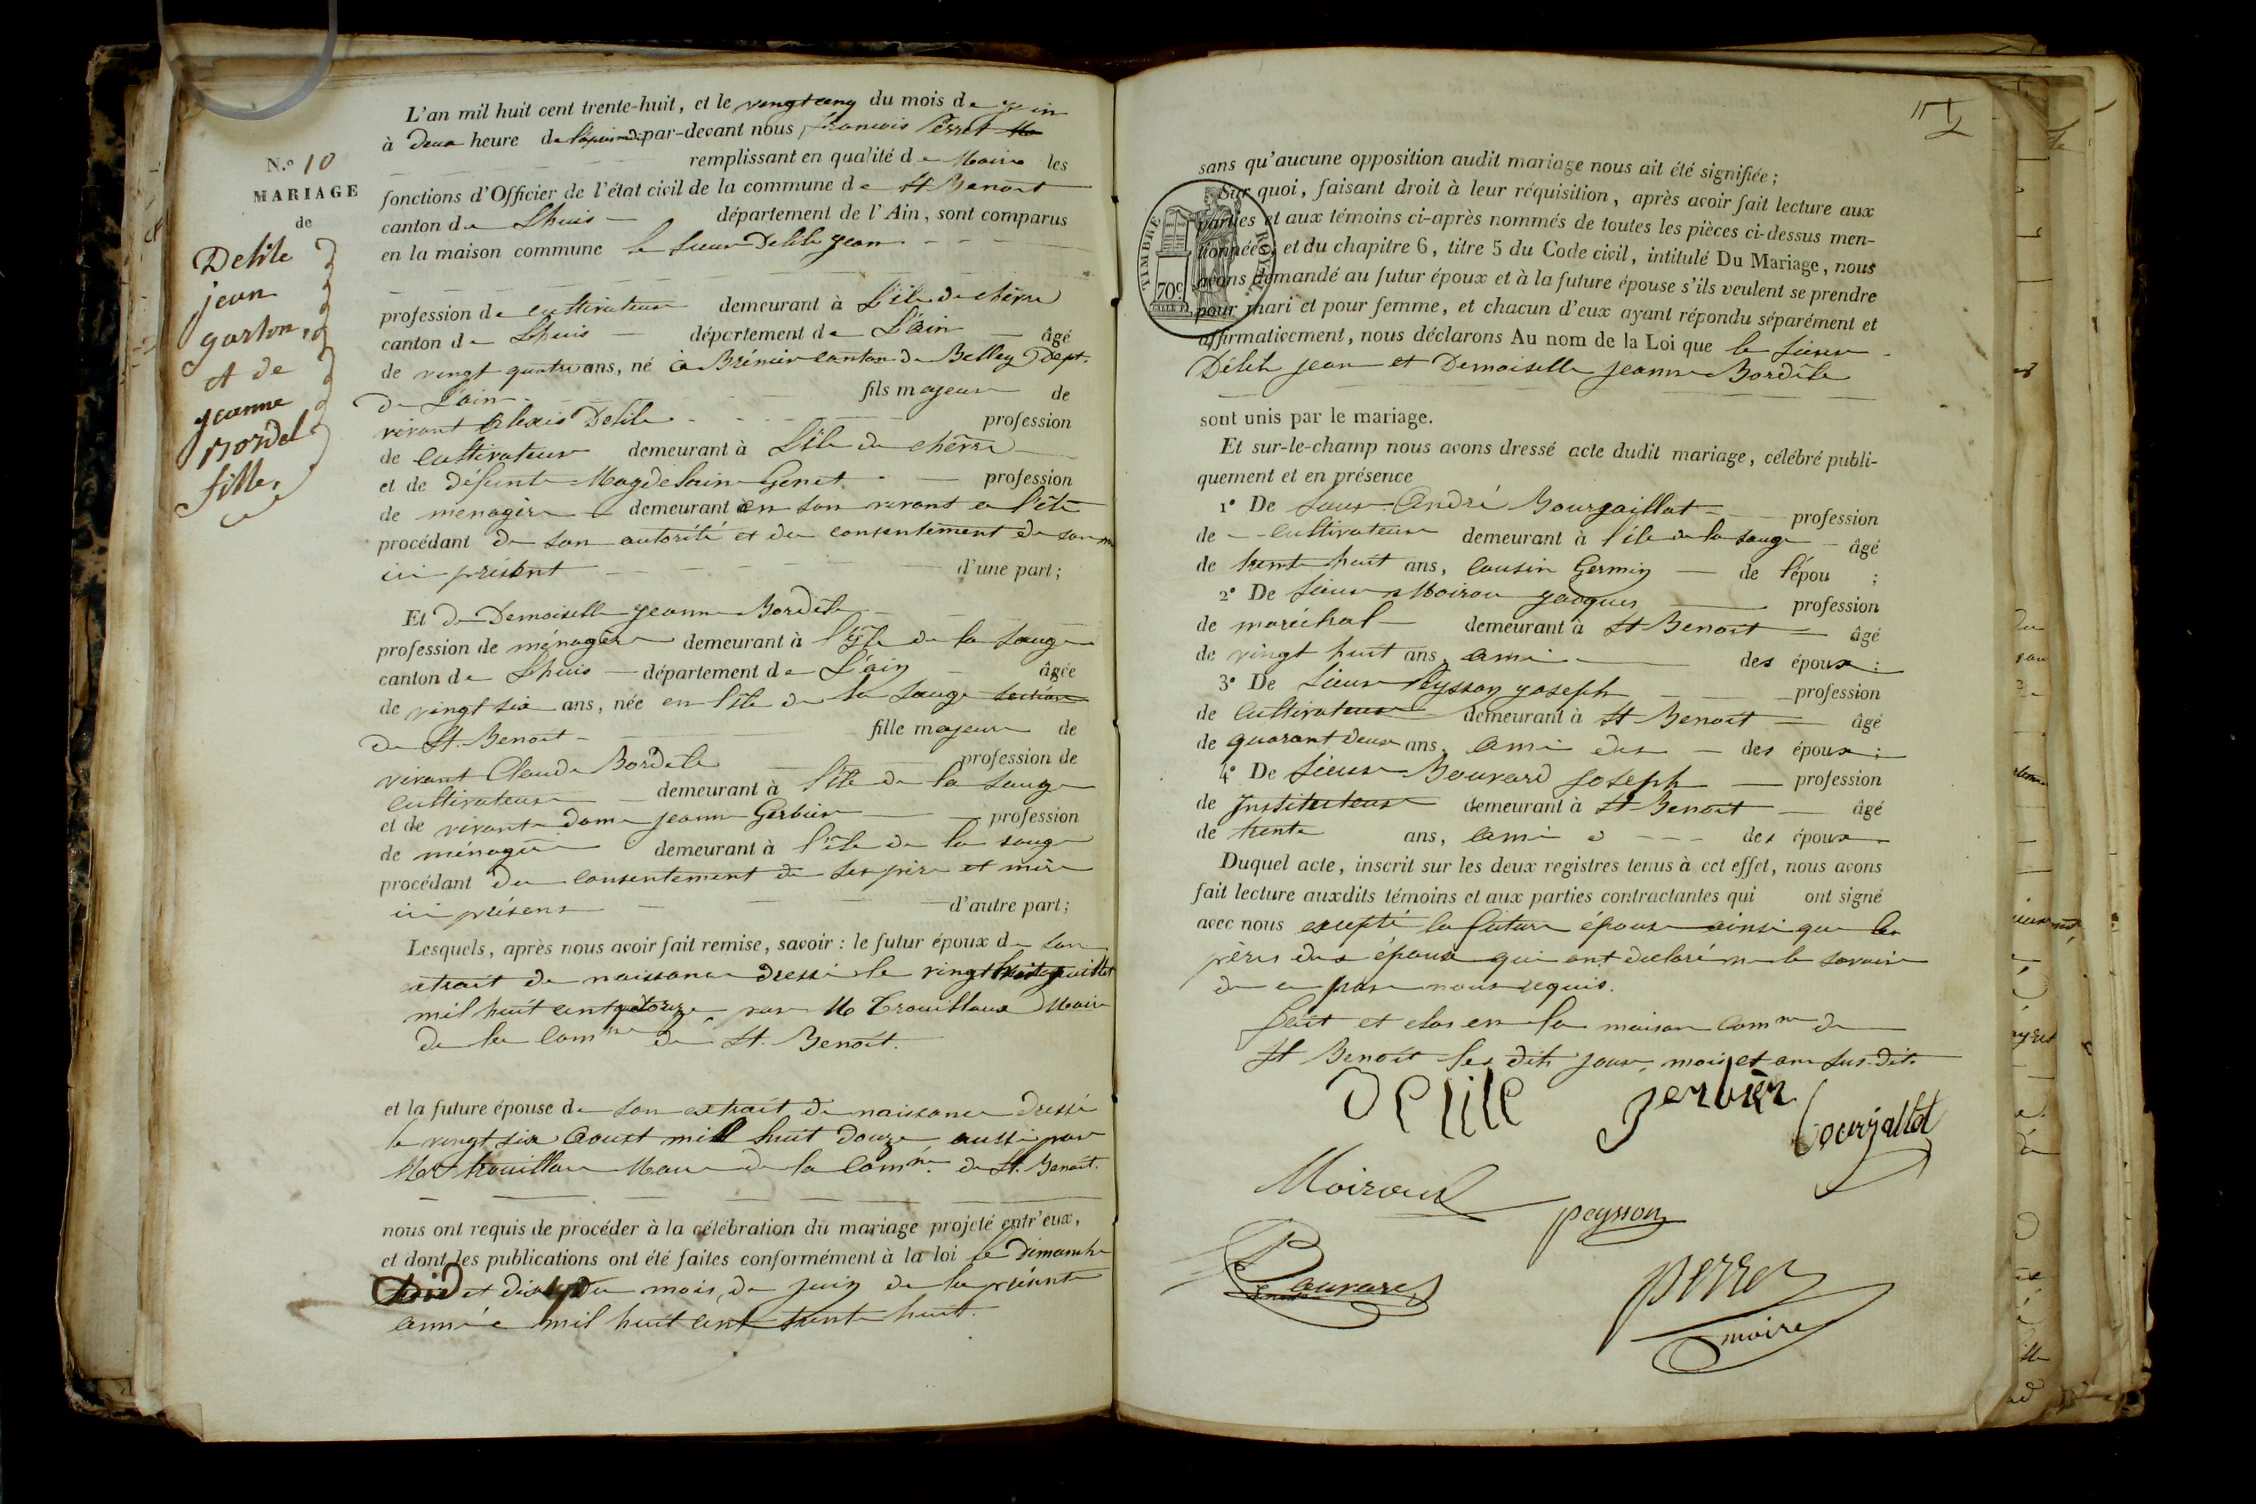 N.º 10
MARIAGE
de
Delile
jean
garson,
et de
jeanne
Bordel
fille,
L'an mil huit cent trente-huit, et le vingt cinq du mois de juin
à deux heure de par-devant nous, francois Perret
remplissant en qualité de Maire les
fonctions d'Officier de l'état civil de la commune de St Benoit
canton de Lhuis département de l'Ain, sont comparus
en la maison commune le sieur Delile jean
profession de cultivateur demeurant à L'île de chêrre
canton de Lhuis département de L'ain âgé
de vingt quatre ans, né à Brénier canton de Belley Dept.
de L'ain fils majeur de
vivant alexis Delile profession
de cultivateur demeurant à L'île de chêrre
et de défunte Magdelaine Genet profession
de menagère demeurant en son vivant a l'île
procédant de son autorité et du consentement de son
ici présent d'une part;
Et de Demoiselle jeanne Bordele
profession de ménagère demeurant à l'île de la sauge
canton de Lhuis département de L'ain âgée
de vingt six ans, née en l'île de la sauge section
de St. Benoit fille majeure de
vivant Claude Bordele profession de
cultivateur demeurant à l'île de la sauge
et de vivante dame jeanne Gerbier profession
de ménagère demeurant à l'île de la sauge
procédant du consentement de ses père et mère
ici présens d'autre part;
Lesquels, après nous avoir fait remise, savoir: le futur époux de son
extrait de naissance dressé le vingt huit juillet
mil huit cent quatorze par M Trouilloux Maire
de la Comne de St. Benoit.
et la future épouse de son extrait de naissance dressé
le vingt six aoust mil huit douze aussi par
Mr trouilloux Maire de la Comne de St. Benoit.
nous ont requis de procéder à la célébration du mariage projeté entr'eux,
et dont les publications ont été faites conformément à la loi le dimanche
et du mois de juin de la présente
année mil huit cent trente huit.
sans qu'aucune opposition audit mariage nous ait été signifiée;
Sur quoi, faisant droit à leur réquisition, après avoir fait lecture aux
parties et aux témoins ci-après nommés de toutes les pièces ci-dessus men-
tionnées, et du chapitre 6, titre 5 du Code civil, intitulé Du Mariage, nous
avons demandé au futur époux et à la future épouse s'ils veulent se prendre
pour mari et pour femme, et chacun d'eux ayant répondu séparément et
affirmativement, nous déclarons Au nom de la Loi que le sieur
Délile jean et Demoiselle jeanne Bordèle
TIMBRE ROYAL
70c
sont unis par le mariage.
Et sur-le-champ nous avons dressé acte dudit mariage, célébré publi-
quement et en présence
1º De sieur André Bourgaillat profession
de cultivateur demeurant à l'île de la sauge âgé
de trente huit ans, cousin Germin de l'épou ;
2º De sieur Moiroux jacques profession
de maréchal demeurant à St Benoit âgé
de vingt huit ans, ami des époux;
3º De sieur Peysson joseph profession
de cultivateur demeurant à St Benoit âgé
de quarant deux ans, ami des des époux;
4º De sieur Bouvard joseph profession
de Instituteur demeurant à St Benoit âgé
de trente ans, ami des époux
Duquel acte, inscrit sur les deux registres tenus à cet effet, nous avons
fait lecture auxdits témoins et aux parties contractantes qui ont signé
avec nous excepté la future épouse ainsi que les
pères des époux qui ont déclaré ne le savoir
de ce par nous requis.
fait et clos en la maison Comne de
St Benoit les dits jour, mois et an sus dit.
Delile Gerbier
Bourgallat
Moiroux
peysson
Bouvard
perret
maire